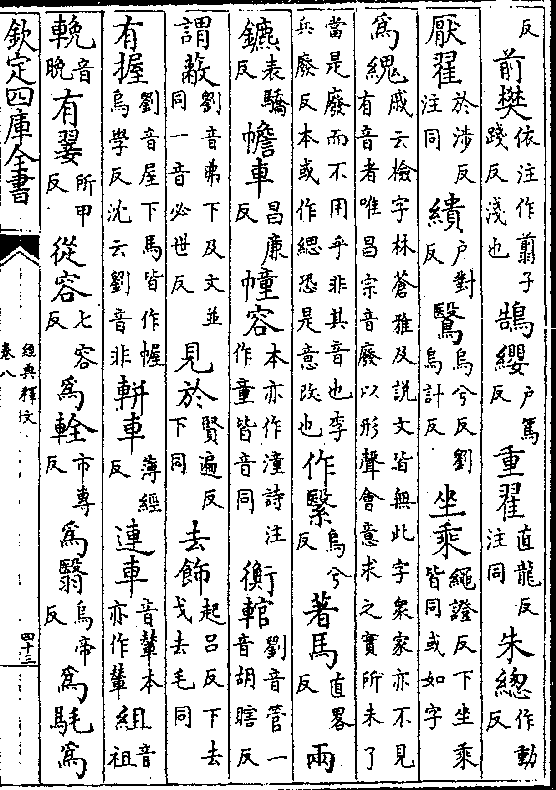 反前樊依注作翦子踐反淺也鵠纓户篤反重翟直龍反注同朱總作動反
厭翟於涉反注同繢户對反鷖烏兮反劉烏計反坐乘繩證反下坐乘皆同或如字
爲戚云檢字林蒼雅及説文皆無此字衆家亦不見有音者唯昌宗音廢以形聲會意求之實所未了
當是廢而不用乎非其音也李兵廢反本或作緦恐是意改也作繄烏兮反著馬直畧反兩
鑣表驕反幨車昌廉反幢容本亦作潼詩注作童皆音同衡輨劉音管一音胡瞎反
謂蔽劉音弗下及文並同一音必世反見於賢遍反下同去飾起呂反下去戈去毛同
有握劉音屋下馬皆作幄烏學反沈云劉音非軿車薄經反連車音輦本亦作輦組音祖
輓音晚有翣所甲反從容七容反爲輇市專反爲翳烏帝反爲爲
欽定四庫全書
經典釋文
卷八
四十三